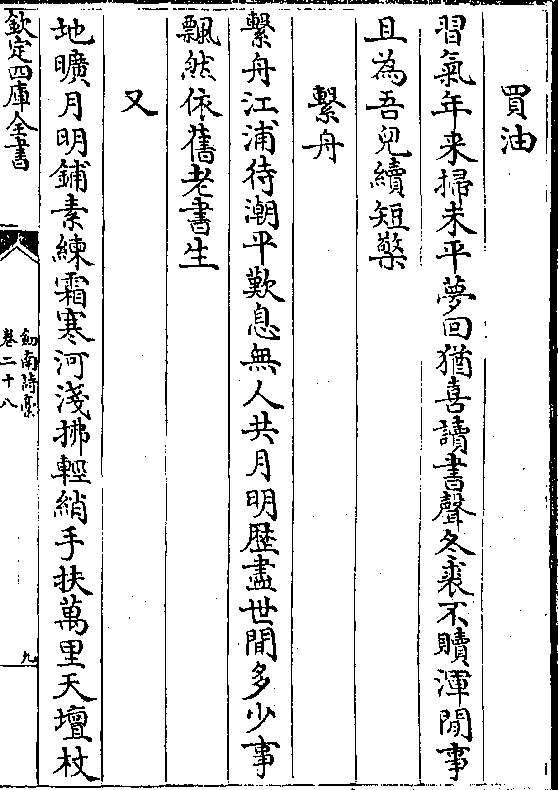 買油
習氣年来掃未平夢回猶喜讀書聲冬裘不贖渾閒事
且為吾兒續短檠
繫舟
繫舟江浦待潮平歎息無人共月明歴盡世間多少事
飄然依舊老書生
又
地曠月明鋪素練霜寒河淺拂輕綃手扶萬里天壇杖
欽定四庫全書
劒南詩槀
卷二十八
九